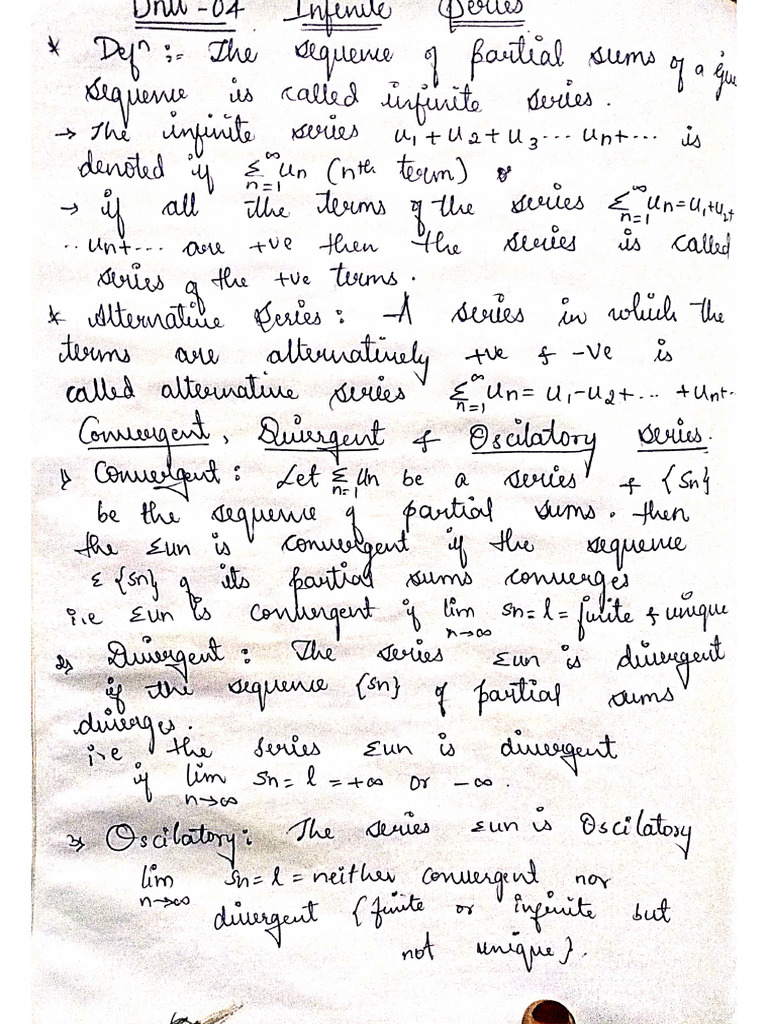 Unit-04 Infenite Series
* Defⁿ :- The sequence of partial sums of a
sequence is called infinite series.
→ The infinite series u₁+u₂+u₃...un+... is
denoted if ∞Σn=1 un (nth term)
→ if all the terms of the series ∞Σn=1 un=u₁+u₂+
..un+... are +ve then the series is called
series of the +ve terms.
* Alternative Series: - A series in which the
terms are alternatively +ve & -ve is
called alternative series ∞Σn=1 un= u₁-u₂+... +un+..
Convergent, Divergent & Oscilatory series.
1) Convergent: Let Σn=1 un be a series & {Sn}
be the sequence of partial sums. then
the Σun is convergent if the sequence
Σ {Sn} of its partial sums converges
i.e Σun is convergent if lim n→∞ Sn=l=finite & unique
2) Divergent: The series Σun is divergent
if the sequence {Sn} of partial sums
diverges.
i.e the series Σun is divergent
if lim n→∞ Sn= l =+∞ or -∞.
3) Oscilatory: The series Σun is Oscilatory
lim n→∞ Sn=l=neither convergent nor
divergent {finite or infinite but
not unique}.